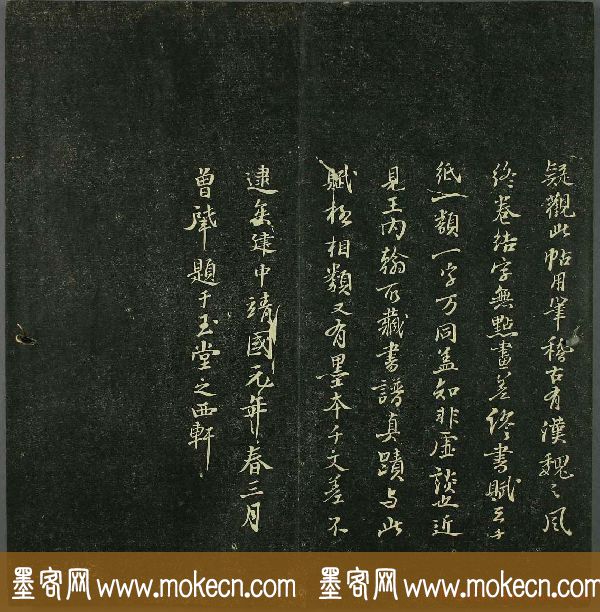 疑觀此帖用筆稽古有漢魏之風
終卷結字無點畫差繆書賦云千
紙一類一字万同盖知非虛談也近
見王內翰所藏書譜真蹟与此
賦極相類又有墨本千文差不
逮矣建中靖國元年春三月
曾肇題于玉堂之西軒
墨客网 www.mokecn.com 墨客网 www.mokecn.com